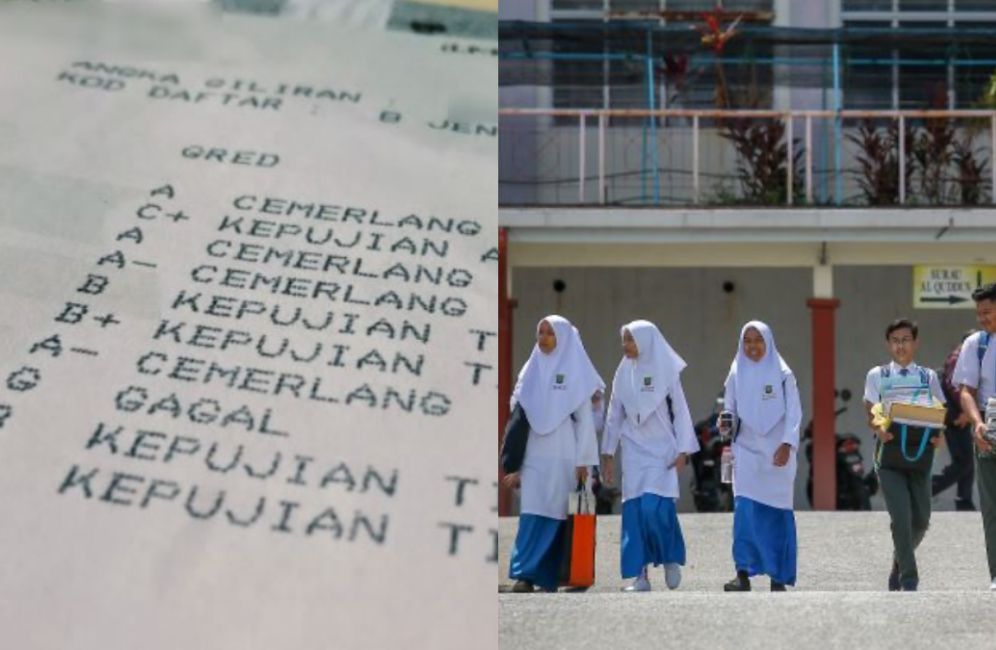 ANGKA GILIRAN :
KOD DAFTAR : B JEN
GRED
A CEMERLANG
C+ KEPUJIAN A
A CEMERLANG
A- CEMERLANG
B KEPUJIAN T
B+ KEPUJIAN T
A- CEMERLANG
G GAGAL
KEPUJIAN T
KEPUJIAN TI
SURAU
AL QUDDUS